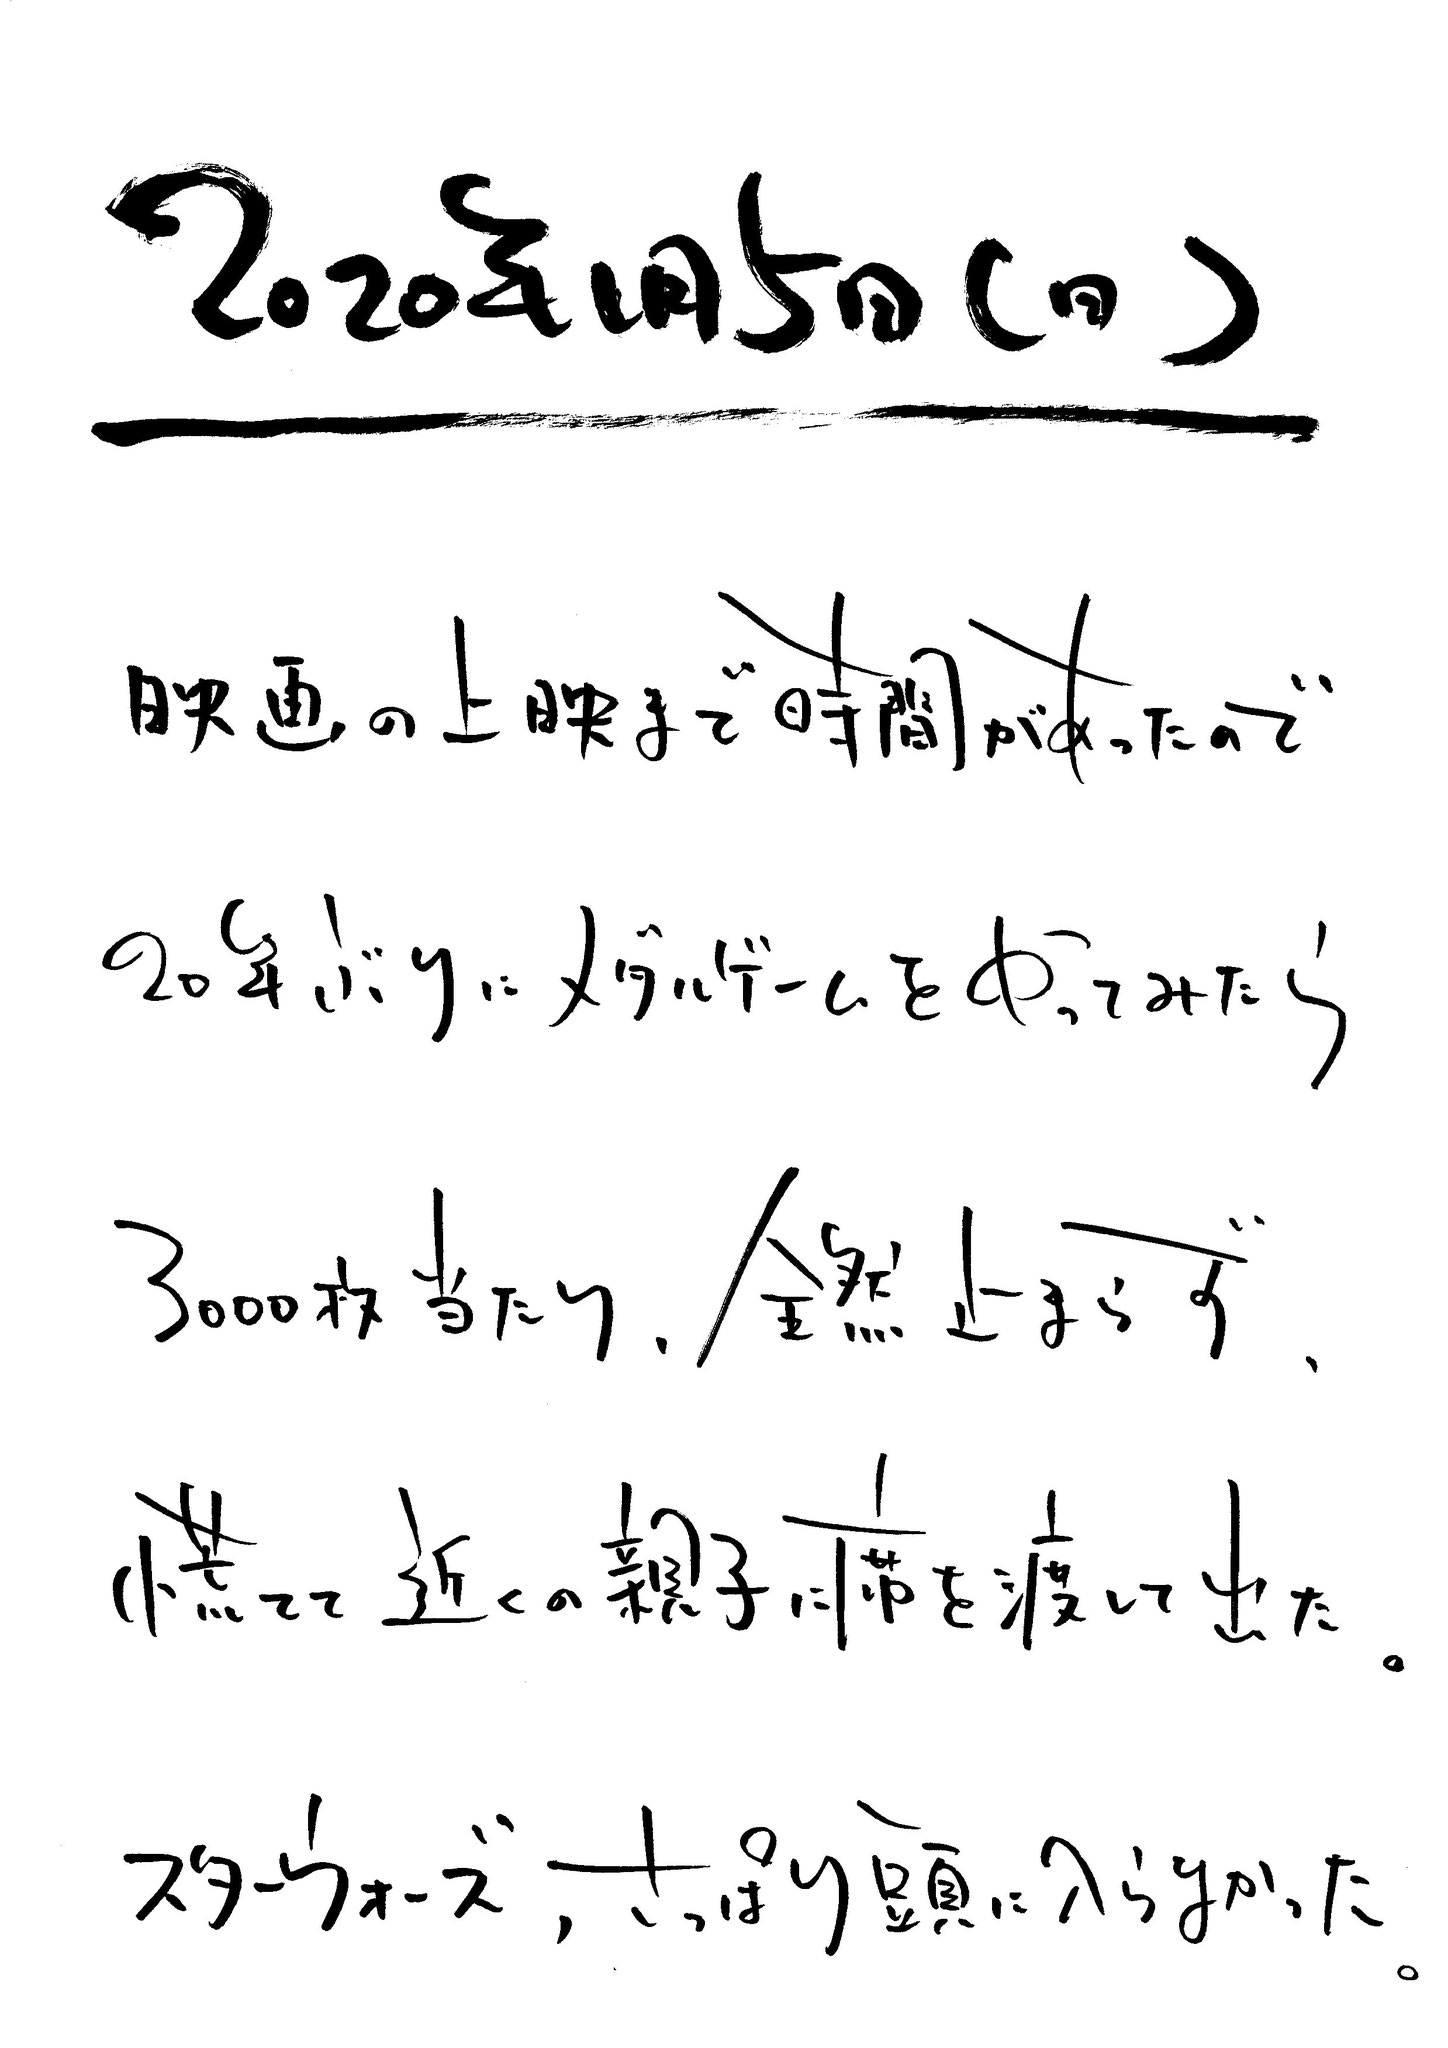 2020年1月5日(日)
映画の上映まで時間があったので
20年ぶりにメダルゲームをやってみたら
3000枚当たり、全然止まらず、
慌てて近くの親子に席を渡して出た。
スターウォーズ、さっぱり頭に入らなかった。